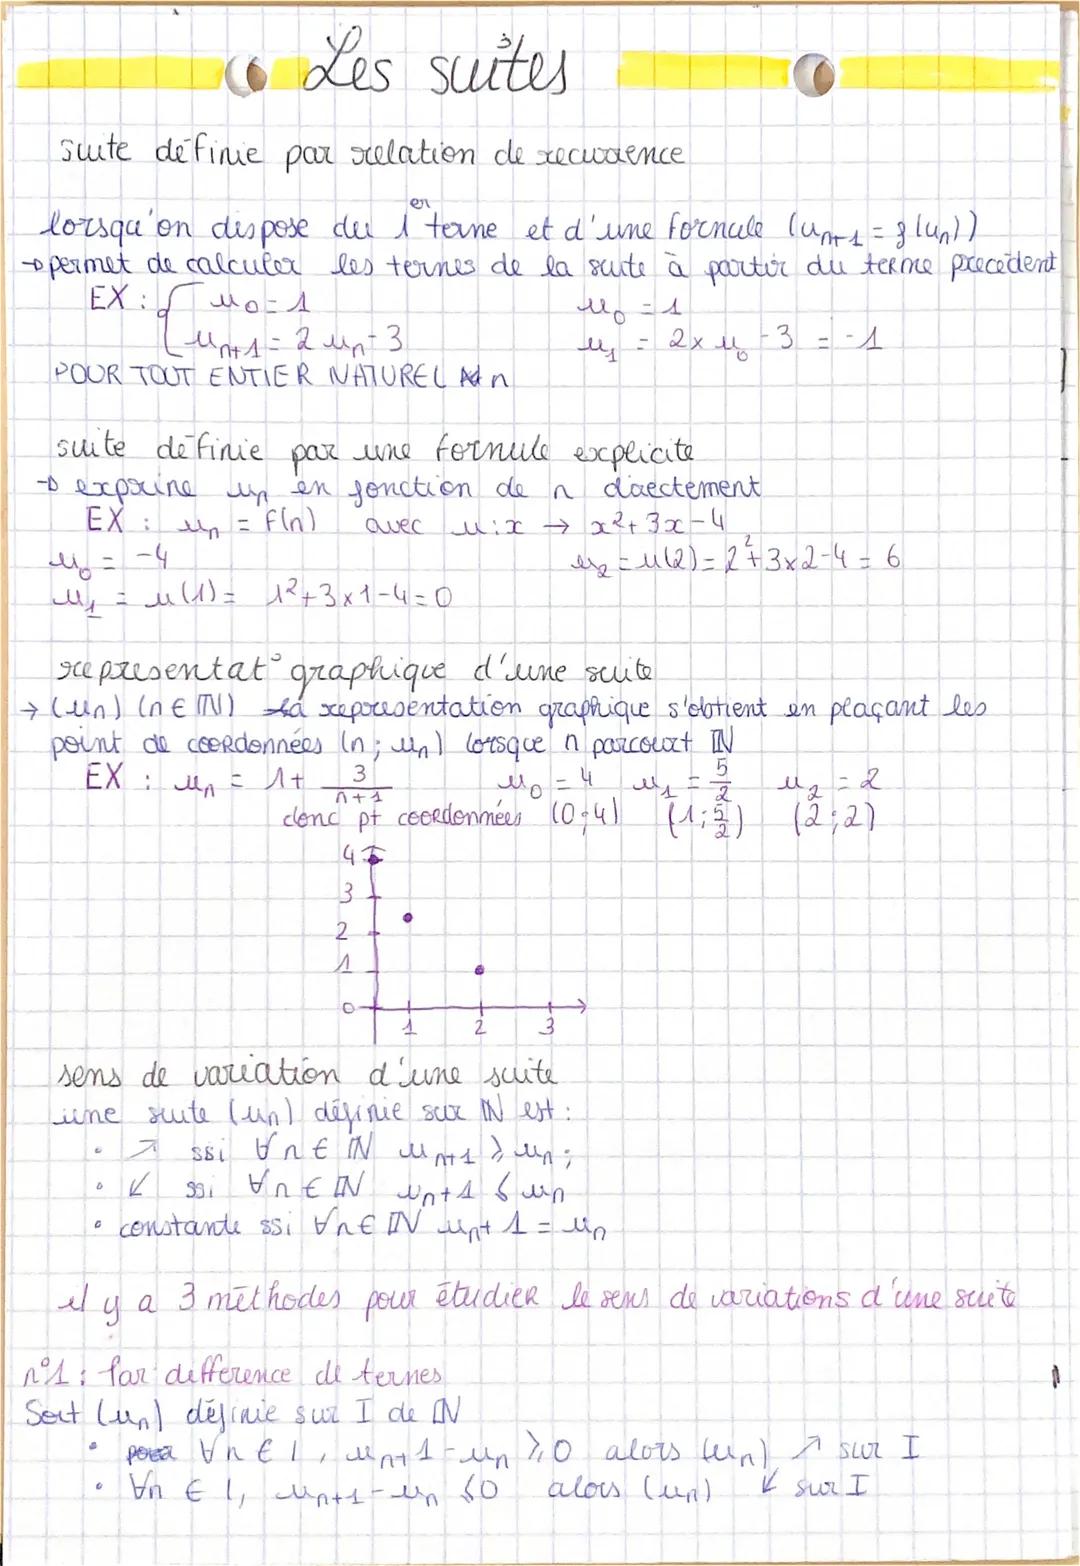 Les suites
suite définie par relation de recurence
lorsqu'on dispose du 1er terme et d'une formule (un+1 = f(un))
→ permet de calculer les termes de la suite à partir du terme precedent
EX : { u0 = 1 u0 = 1
un+1 = 2 un - 3 u1 = 2 x u0 - 3 = -1
POUR TOUT ENTIER NATUREL n
suite définie par une formule explicite
→ exprime un en fonction de n directement
EX : un = f(n) avec u : x → x² + 3x - 4
u0 = -4 u2 = u(2) = 2² + 3x2 - 4 = 6
u1 = u(1) = 1² + 3x1 - 4 = 0
representat° graphique d'une suite
→ (un) (n ∈ ℕ) la representation graphique s'obtient en plaçant les
point de coordonnées (n ; un) lorsque n parcourt ℕ
EX : un = 1 + 3/(n+1) u0 = 4 u1 = 5/2 u2 = 2
donc pt coordonnées (0 ; 4) (1 ; 5/2) (2 ; 2)
4
3
2
1
0
1 2 3
sens de variation d'une suite
une suite (un) définie sur ℕ est :
• ↗ ssi ∀n ∈ ℕ un+1 ⩾ un ;
• ↙ ssi ∀n ∈ ℕ un+1 ⩽ un
• constante ssi ∀n ∈ ℕ un+1 = un
il y a 3 méthodes pour étudier le sens de variations d'une suite
n°1 : Par difference de termes
Soit (un) définie sur I de ℕ
• ∀n ∈ I, un+1 - un ⩾ 0 alors (un) ↗ sur I
• ∀n ∈ I, un+1 - un ⩽ 0 alors (un) ↙ sur I